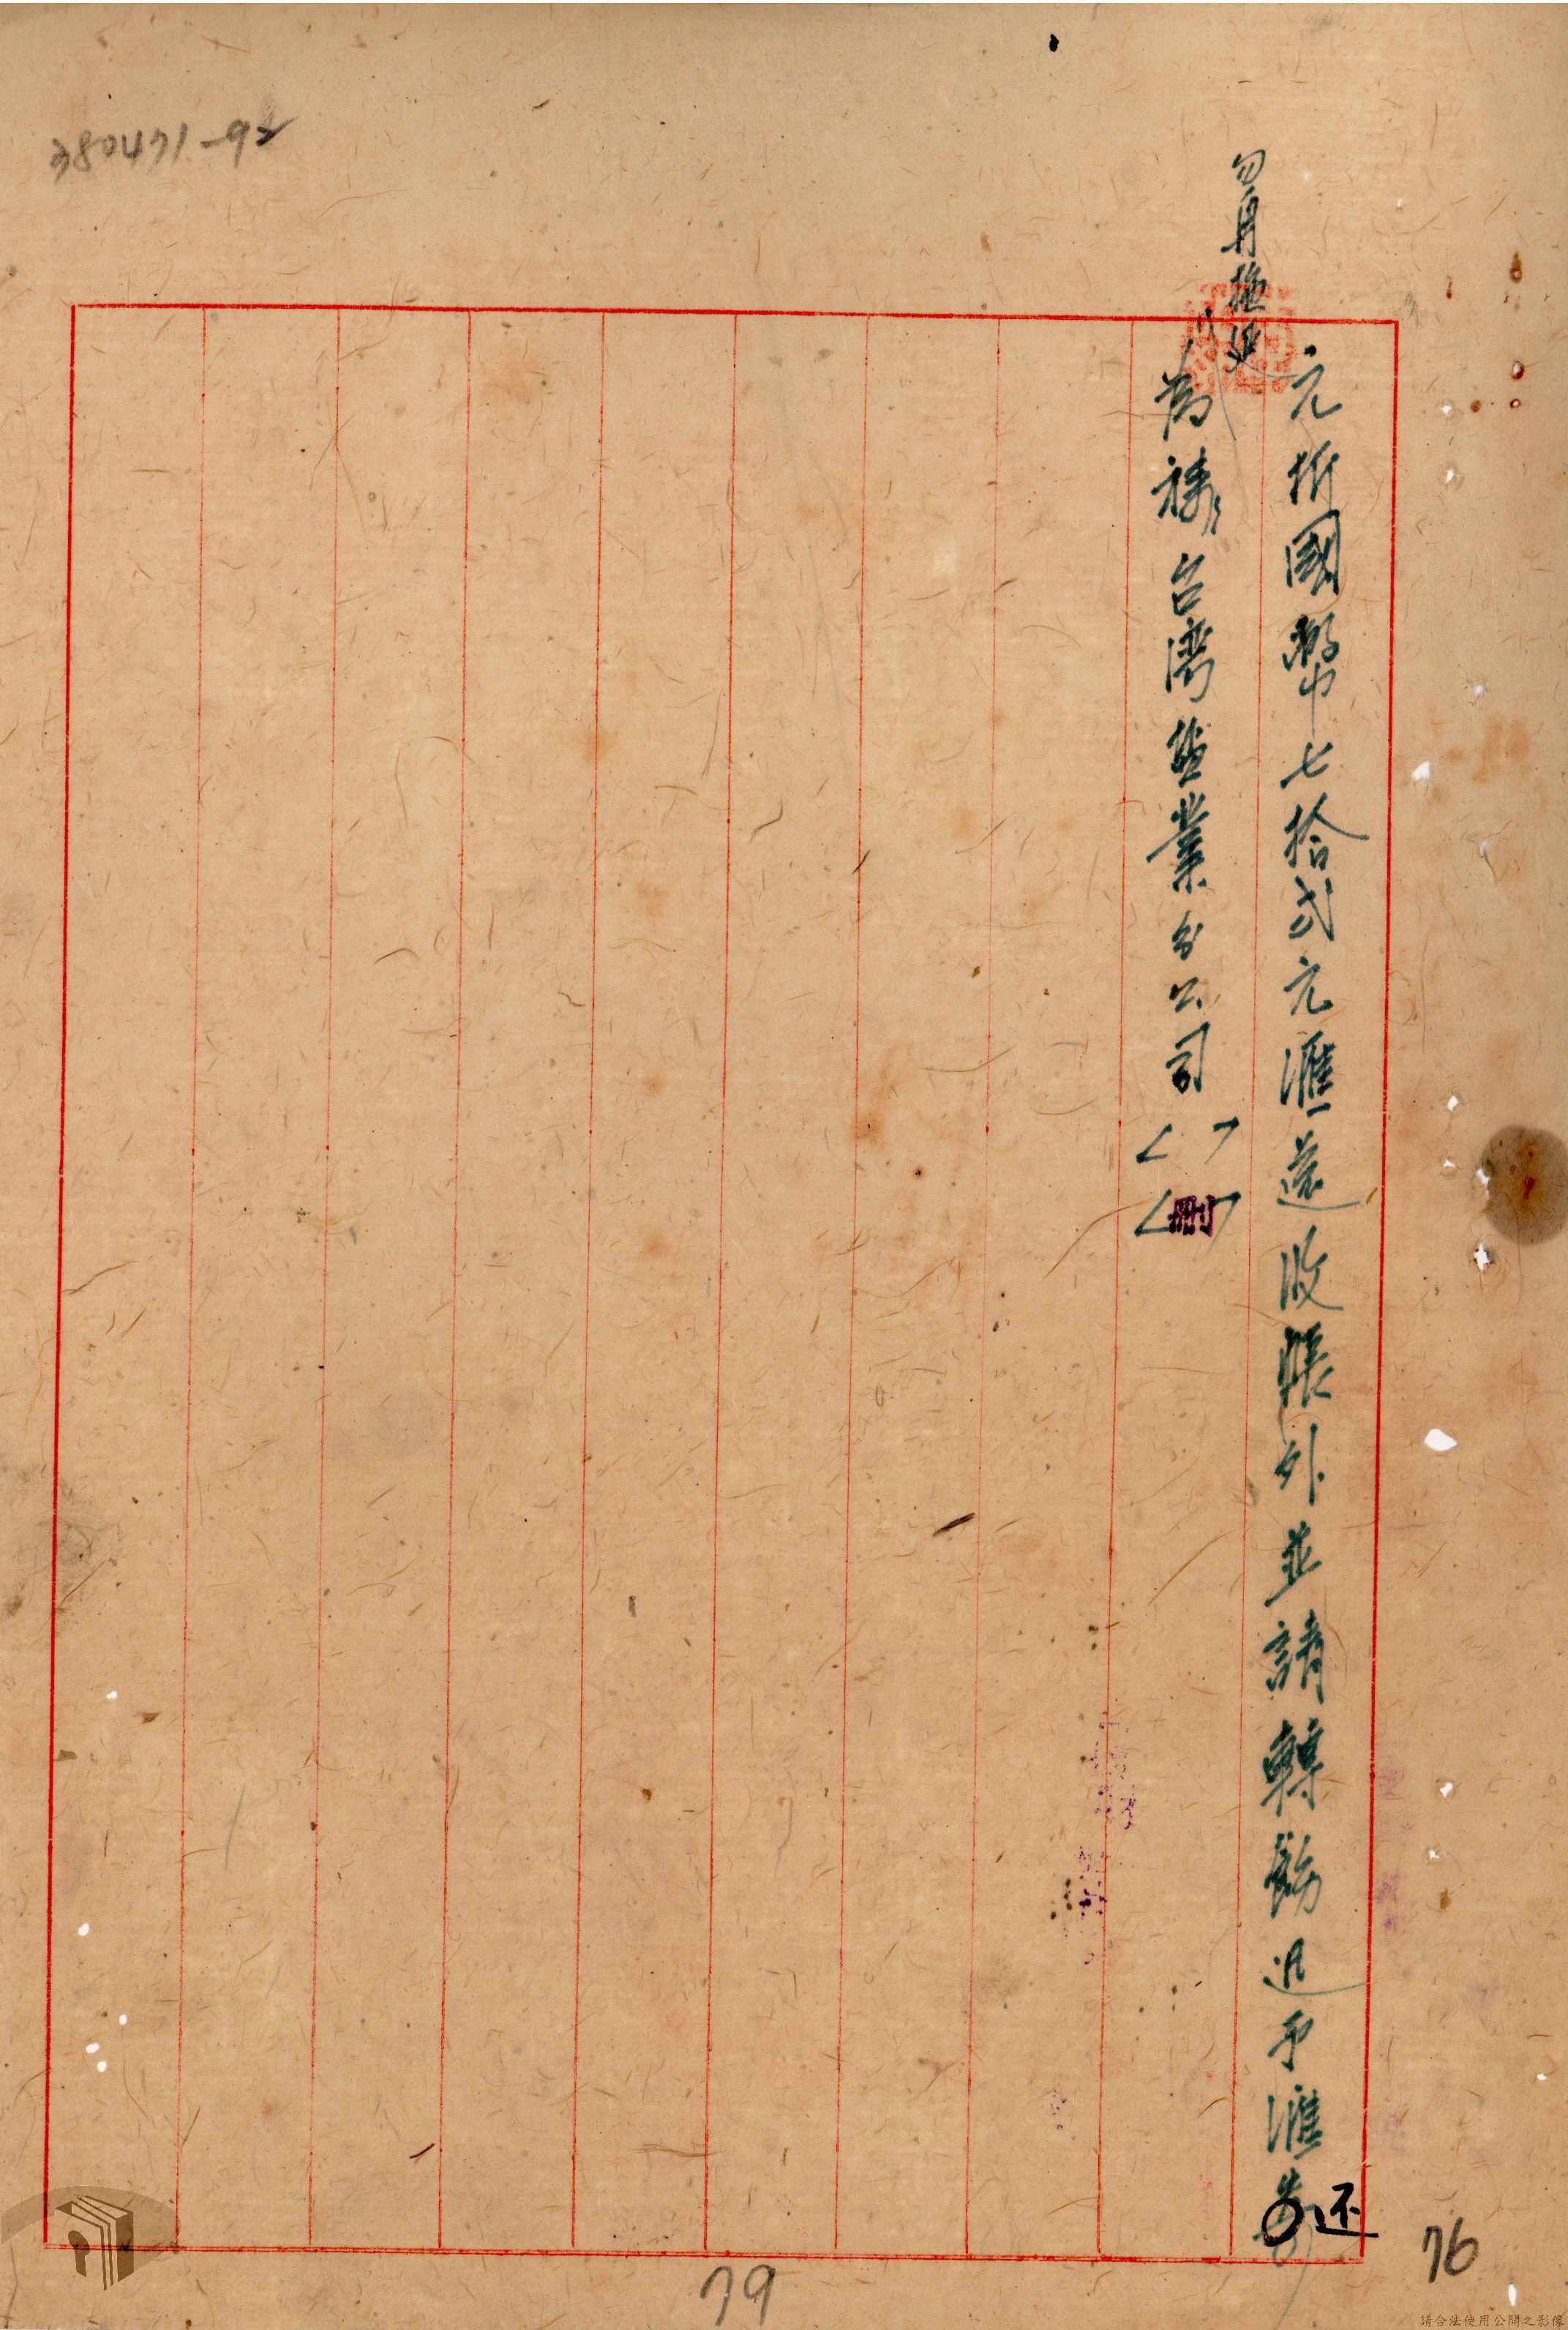 380471-92
勿再拖延
元折國幣七拾弍元滙還收賬外並請轉飭迅予滙
还
為禱台灣鹽業分公司
刪
79
76
請合法使用公開之影像